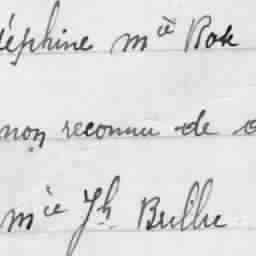 éphine mie Rok
non reconnu de
mie Jh Brillu